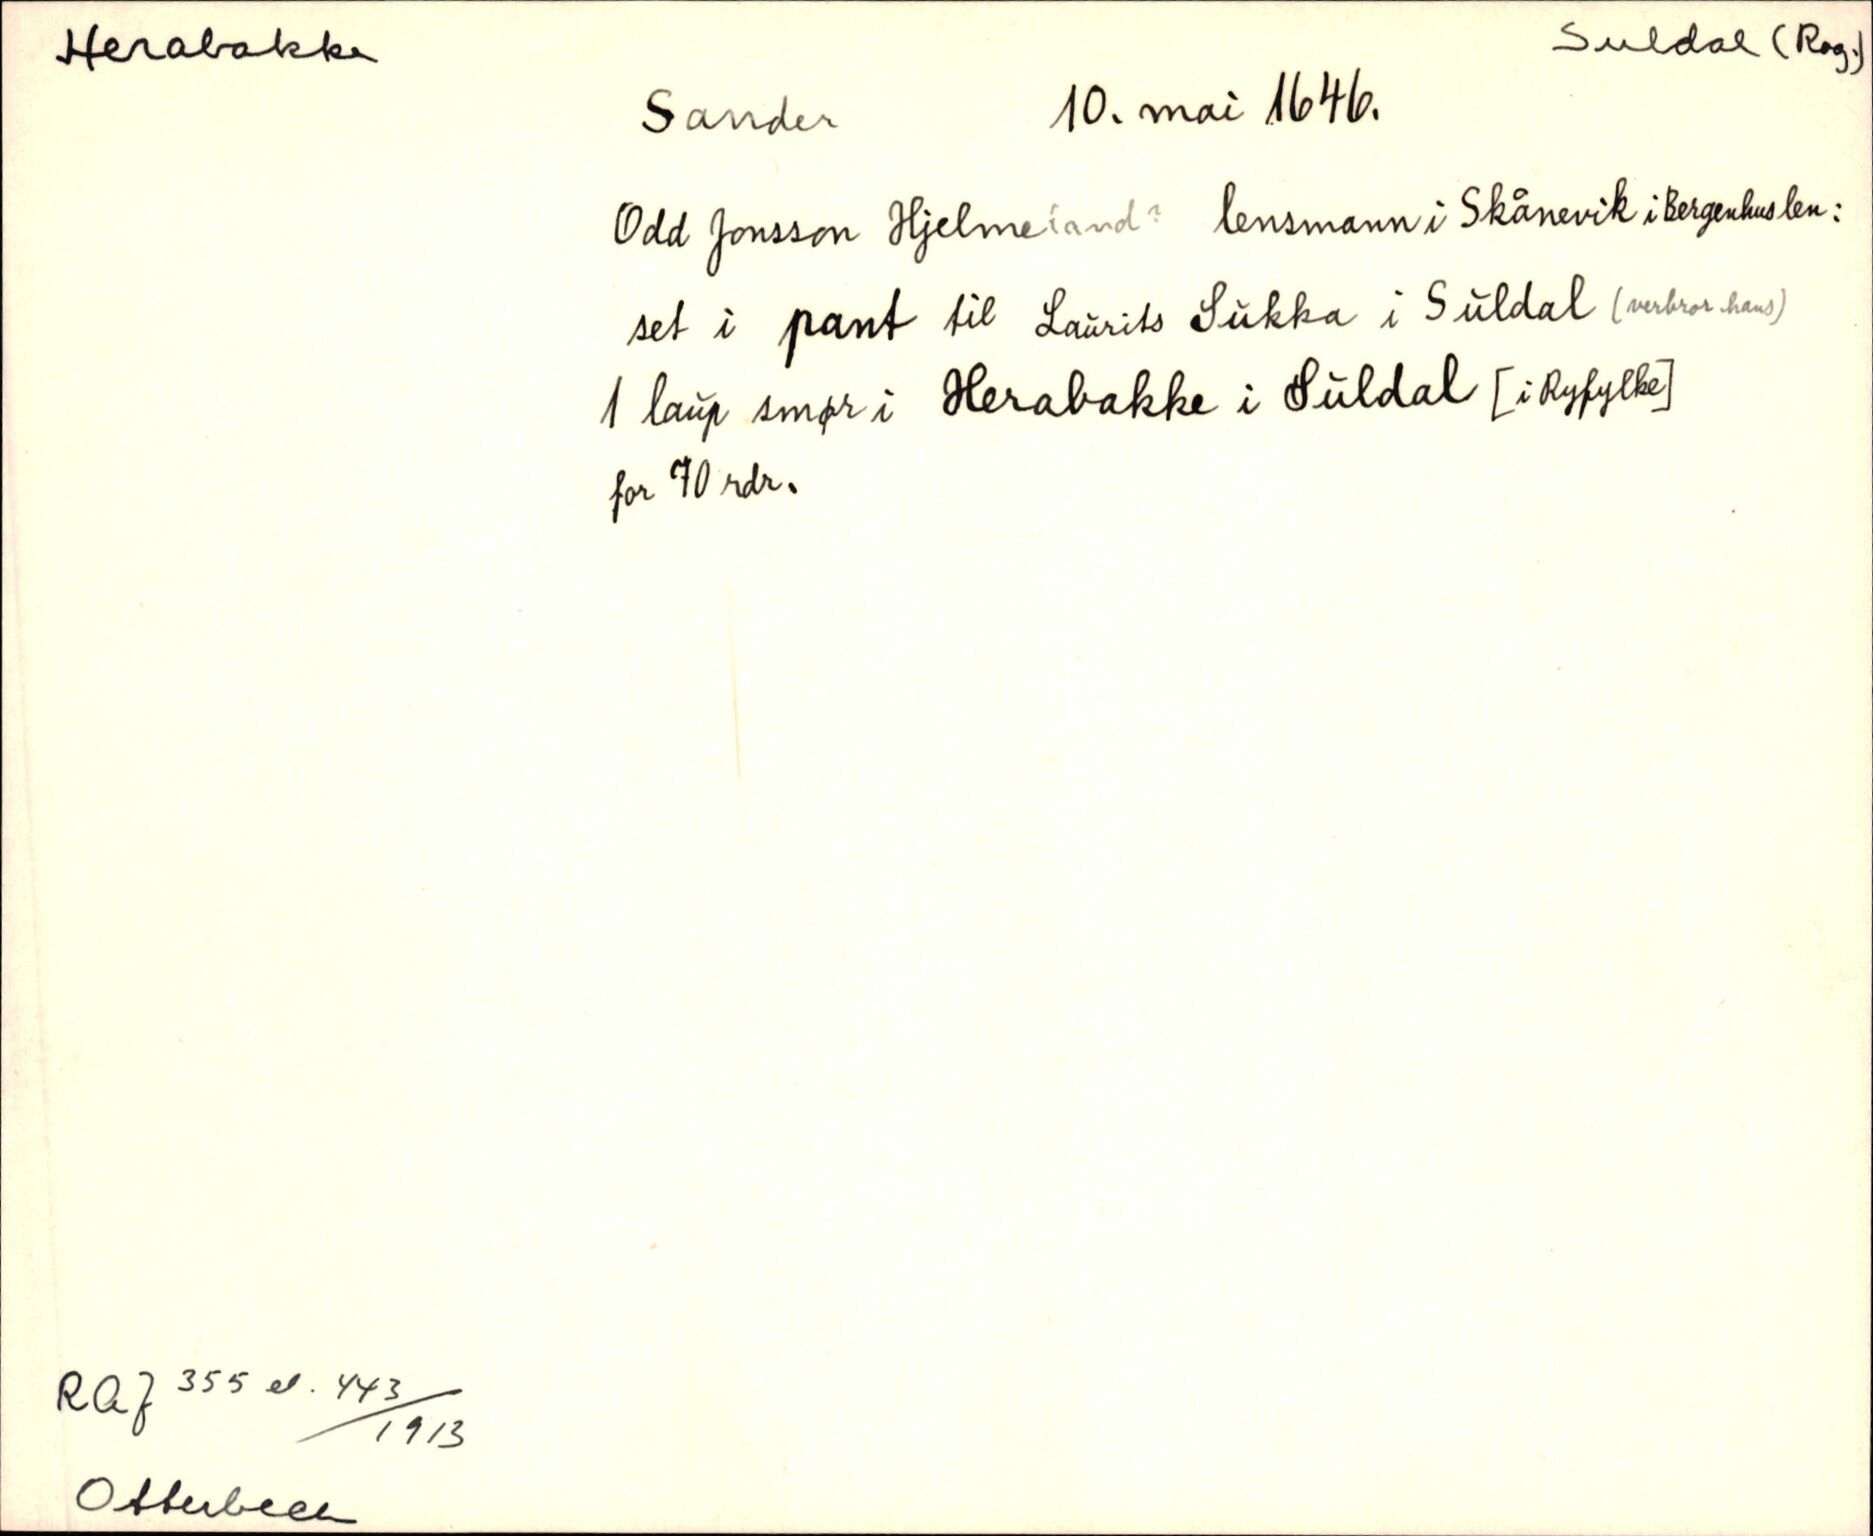 Herabakke
Suldal (Rog.)
Sander 10. mai 1646.
Odd Jonsson Hjelmeland? lensmann i Skånevik i Bergenhus len:
set i pant til Laŭrits Sŭkka i Sŭldal (verbror hans)
1 laŭp smør i Herabakke i Sŭldal [i Ryfylke]
for 70 rdr.
355 el. 443/1913
Otterbech